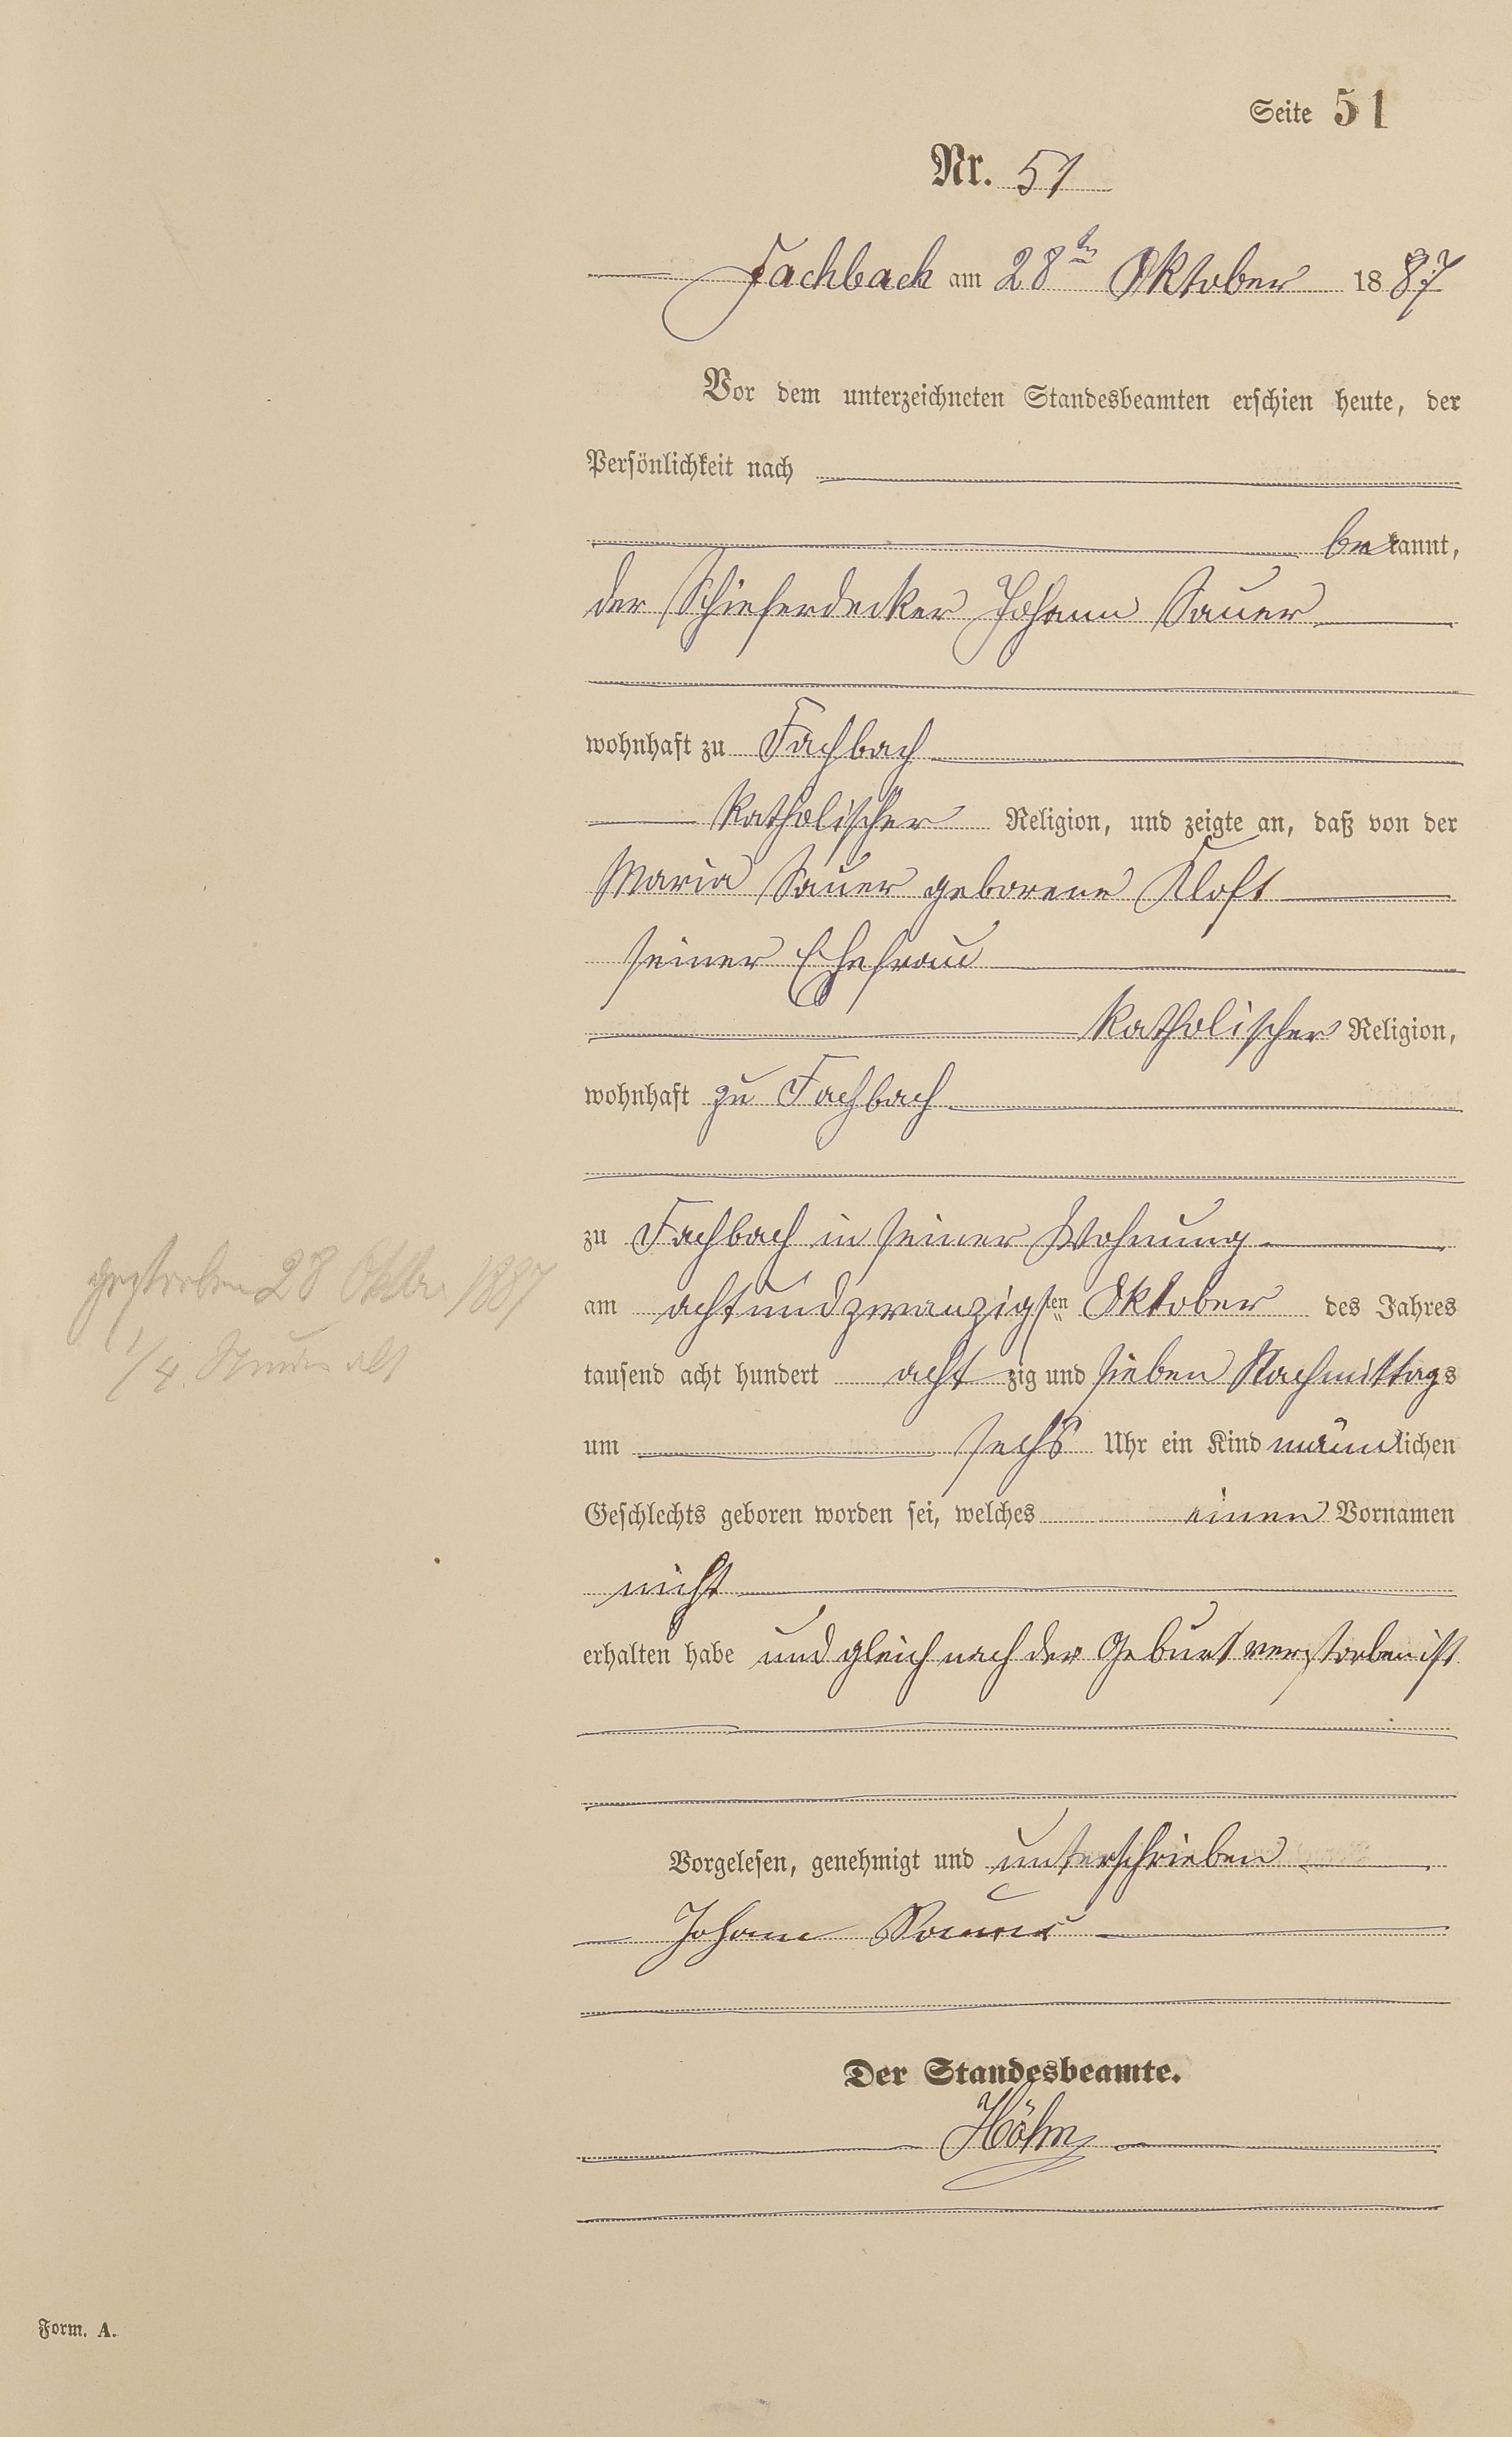 Seite 51
Nr. 51
Fachbach am 28ten Oktober 1887
Vor dem unterzeichneten Standesbeamten erschien heute, der
Persönlichkeit nach
bekannt,
der Schieferdecker Johann Sauer
wohnhaft zu Fachbach
katholischer Religion, und zeigte an, daß von der
Maria Sauer geborene Kloft
seiner Ehefrau
katholischer Religion,
wohnhaft zu Fachbach
zu Fachbach in seiner Wohnung
am achtundzwanzigsten Oktober des Jahres
tausend acht hundert achtzig und sieben Nachmittags
um sechs Uhr ein Kind männlichen
Geschlechts geboren worden sei, welches einen Vornamen
nicht
erhalten habe und gleich nach der Geburt verstorben ist
gestorben 28 Oktbr 1887
1/4 Stunde alt
Vorgelesen, genehmigt und unterschrieben
Johann Sauer
Der Standesbeamte.
Höhn
Form. A.